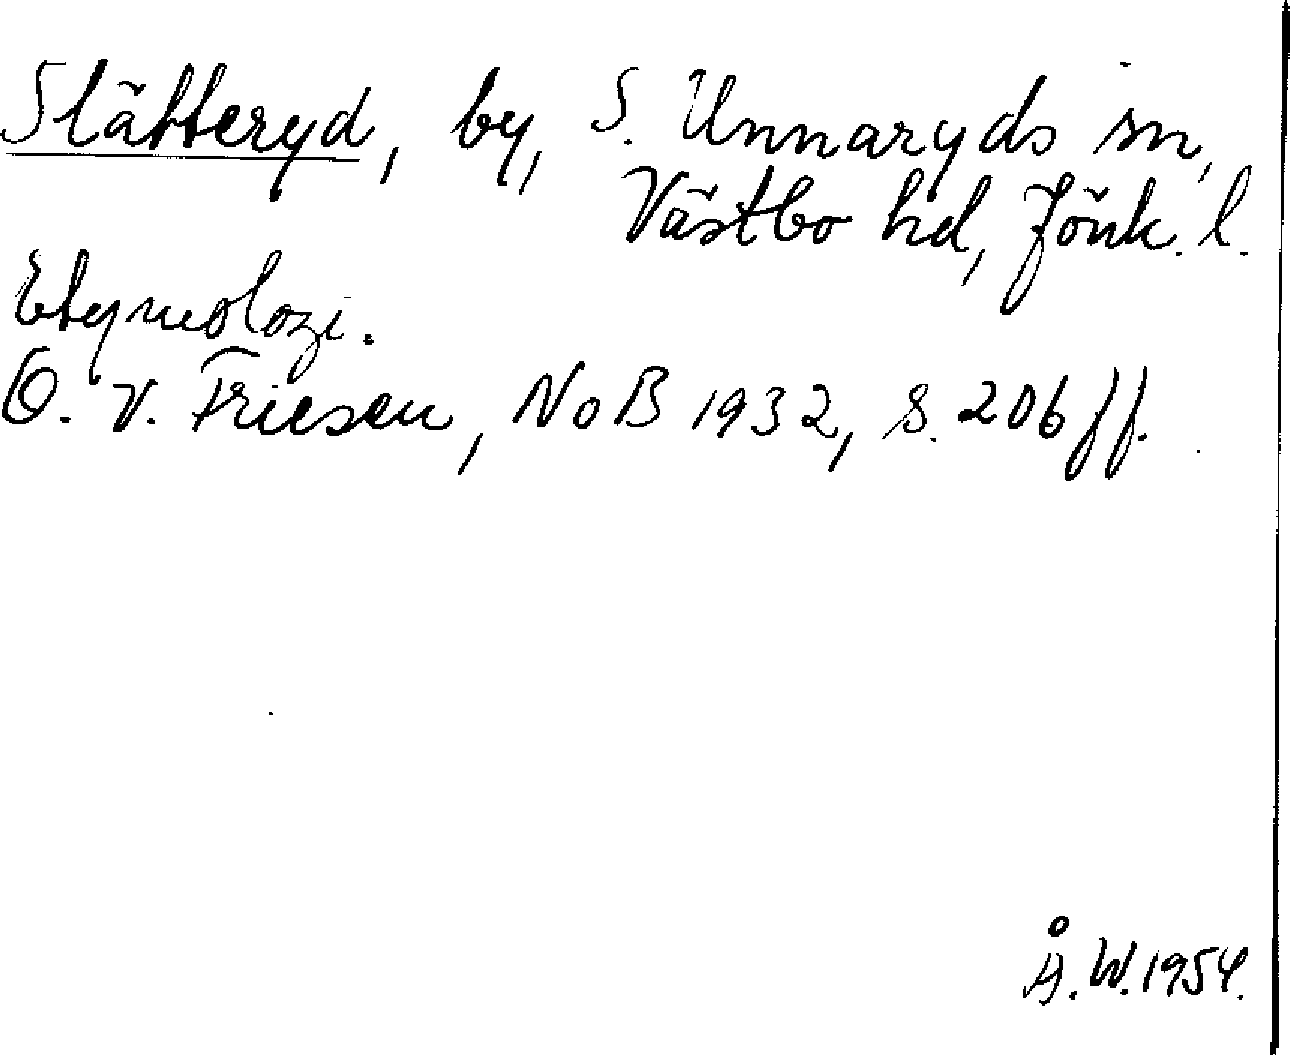 Slätteryd, by, S. Unnaryds sn,
Västbo hd, Jönk. l.
Etymologi.
O. v. Friesen, NoB 1932, s. 206 ff.
Å. W. 1954.